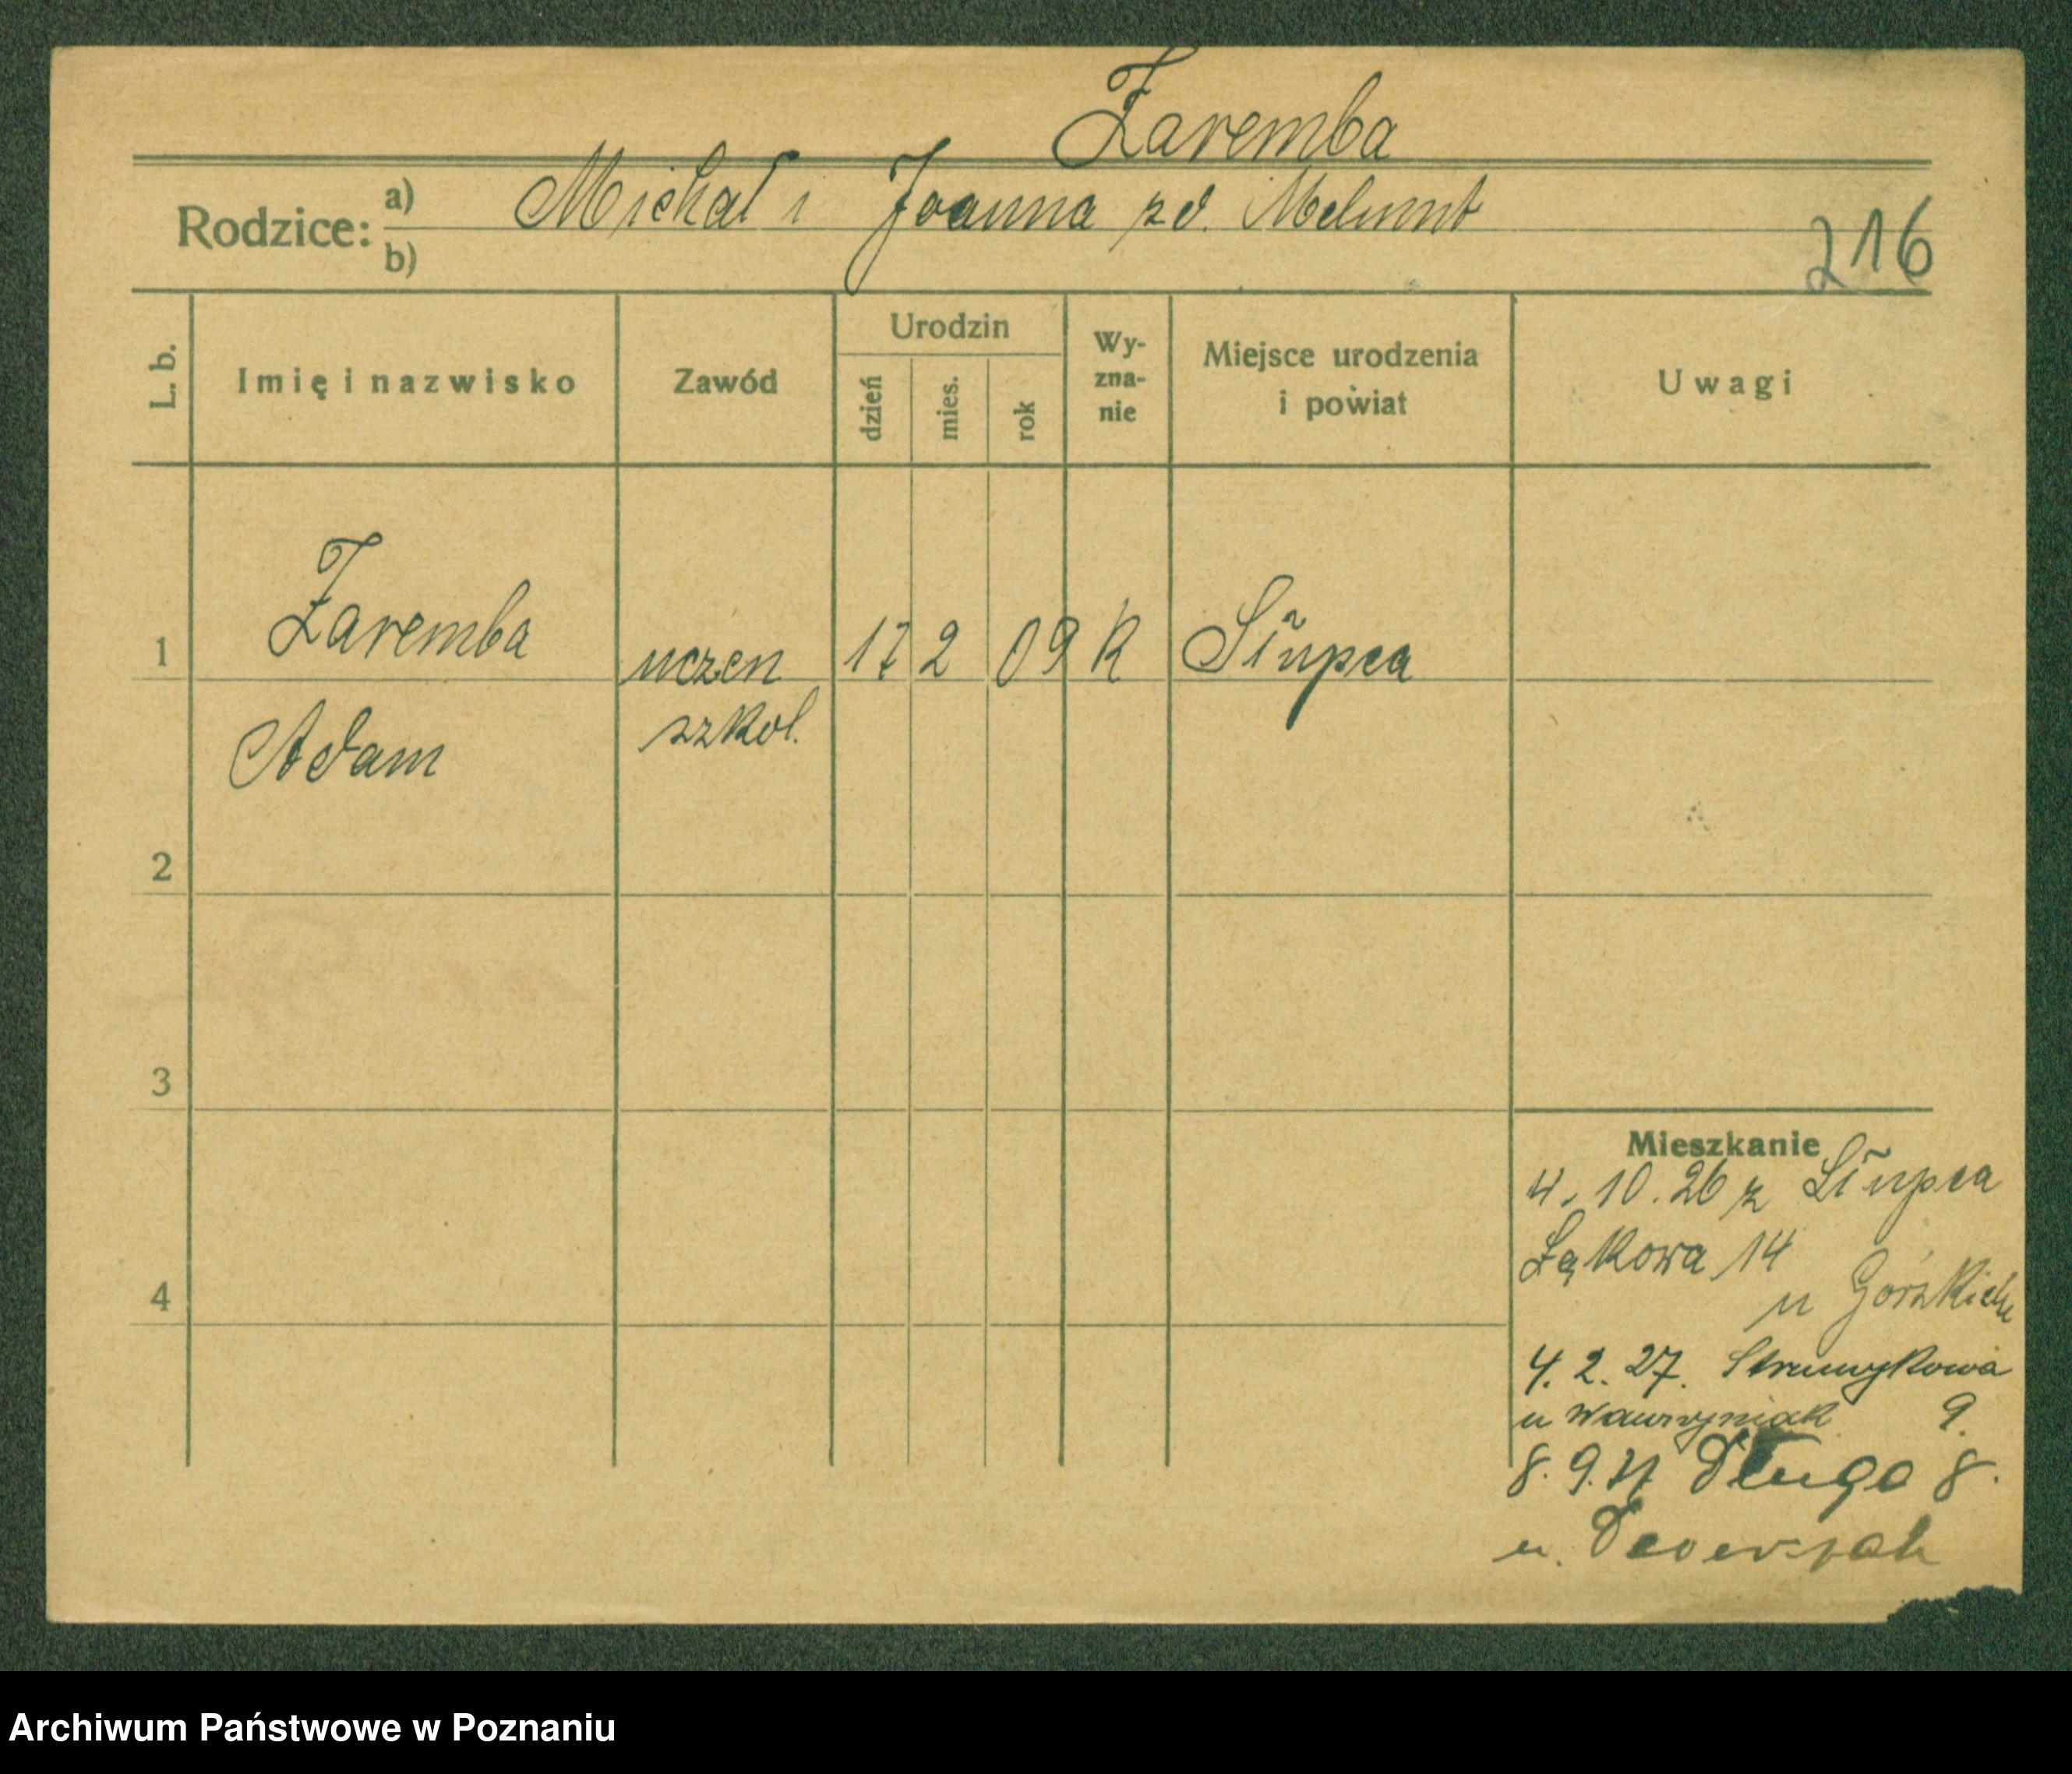 Zaremba
Rodzice: a) Michał i Joanna zd.
b)
216
L. b. Imię i nazwisko Zawód Urodzin dzień mies. rok Wy-zna-nie Miejsce urodzenia i powiat Uwagi
1 Zaremba uczen 17 2 09 K Słupca
Adam szkol.
2
3
4
Mieszkanie
4. 10. 26 z Słupca
Łąkowa 14
u Górskich
4. 2. 27. Strumykowa
u Wawrzyniak 9.
8. 9. Długa 8.
u.
Archiwum Państwowe w Poznaniu